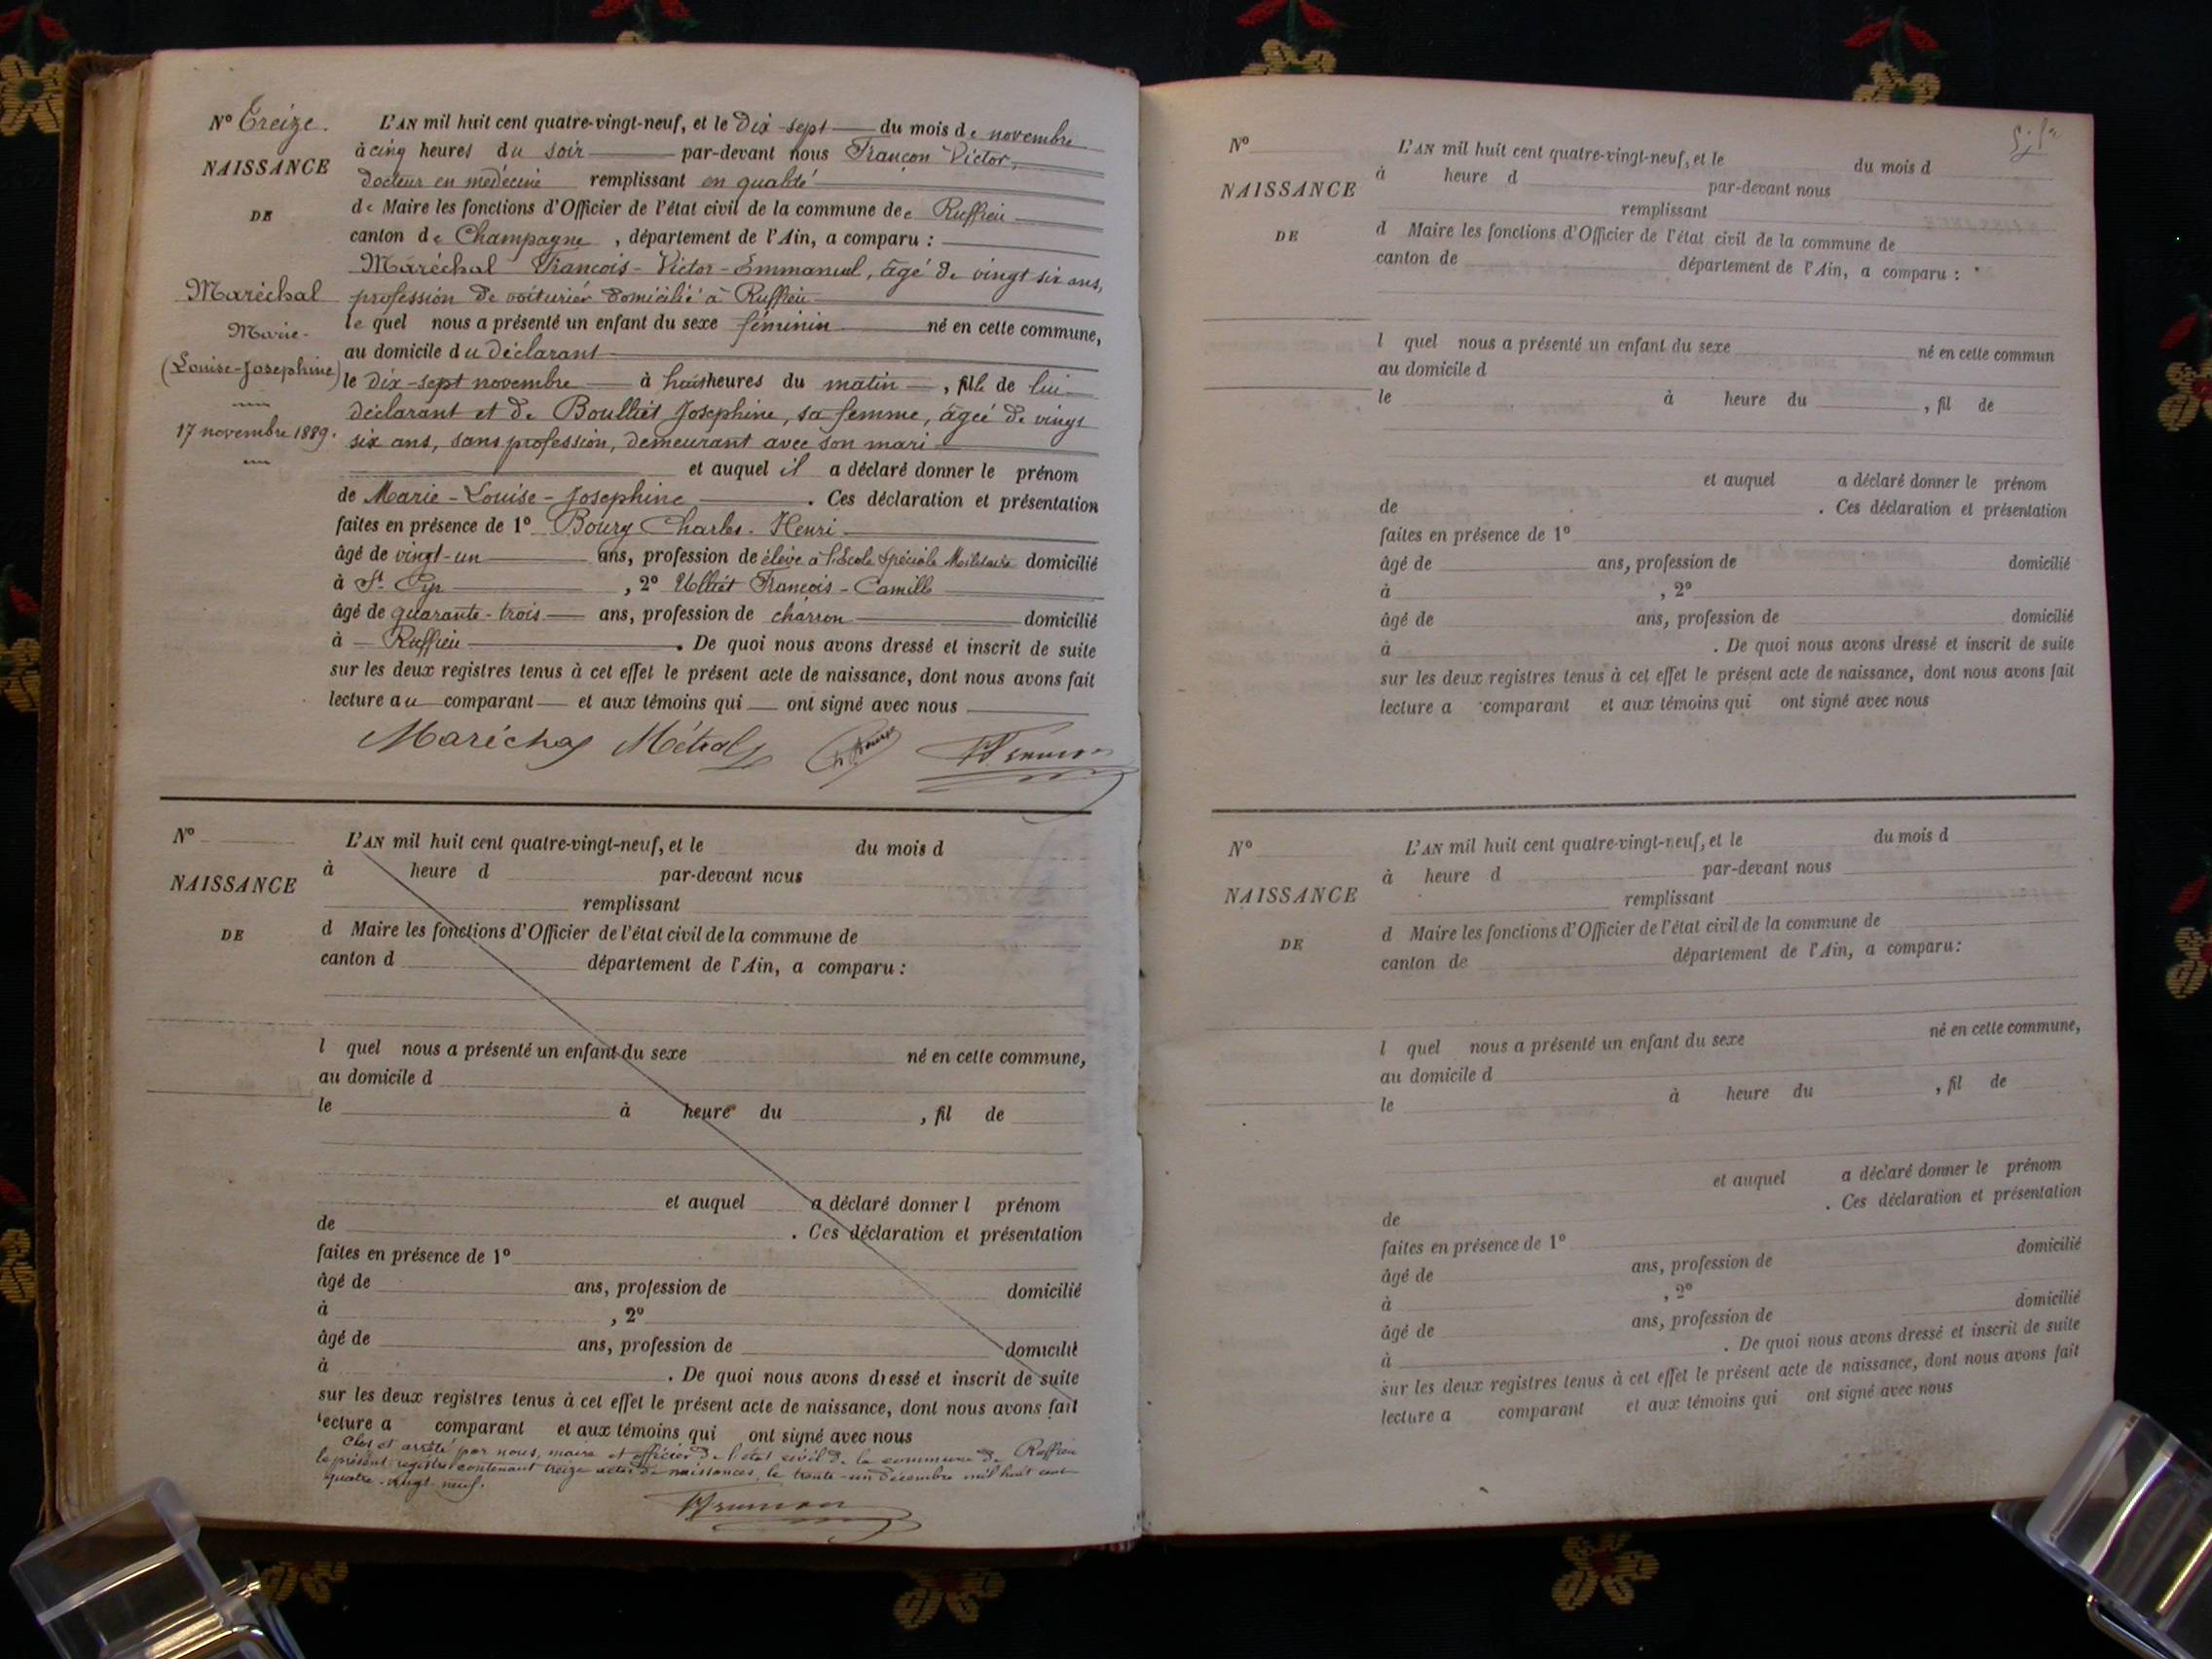 N° Treize.
NAISSANCE
DE
Maréchal
Marie-
(Louise-Josephine)
17 novembre 1889.
L'AN mil huit cent quatre-vingt-neuf, et le dix-sept du mois de novembre
à cinq heures du soir par-devant nous Françon Victor,
docteur en médecine remplissant en qualité
de Maire les fonctions d'Officier de l'état civil de la commune de Ruffieu
canton de Champagne, département de l'Ain, a comparu :
Maréchal François-Victor-Emmanuel, âgé de vingt six ans,
profession de voiturier domicilié à Ruffieu
lequel nous a présenté un enfant du sexe féminin né en cette commune,
au domicile du déclarant
le dix-sept novembre à huit heures du matin, fille de lui
déclarant et de Boulliet Josephine, sa femme, âgée de vingt
six ans, sans profession, demeurant avec son mari
et auquel il a déclaré donner le prénom
de Marie-Louise-Josephine. Ces déclaration et présentation
faites en présence de 1° Bourg Charles-Henri
âgé de vingt-un ans, profession de élève à l'Ecole Spéciale Militaire domicilié
à St Cyr, 2° François-Camille
âgé de quarante-trois ans, profession de charron domicilié
à Ruffieu. De quoi nous avons dressé et inscrit de suite
sur les deux registres tenus à cet effet le présent acte de naissance, dont nous avons fait
lecture au comparant et aux témoins qui ont signé avec nous
Maréchal Métral
N°
NAISSANCE
DE
L'AN mil huit cent quatre-vingt-neuf, et le du mois d
à heure d par-devant nous
remplissant
d Maire les fonctions d'Officier de l'état civil de la commune de
canton d département de l'Ain, a comparu :
l quel nous a présenté un enfant du sexe né en cette commune,
au domicile d
le à heure du , fil de
et auquel a déclaré donner l prénom
de . Ces déclaration et présentation
faites en présence de 1°
âgé de ans, profession de domicilié
à , 2°
âgé de ans, profession de domicilié
à . De quoi nous avons dressé et inscrit de suite
sur les deux registres tenus à cet effet le présent acte de naissance, dont nous avons fait
lecture a comparant et aux témoins qui ont signé avec nous
Clos et arrêté par nous, maire et officier de l'état civil de la commune de Ruffieu
le présent registre contenant treize actes de naissances, le trente-un décembre mil huit cent
quatre-vingt-neuf.
N°
NAISSANCE
DE
L'AN mil huit cent quatre-vingt-neuf, et le du mois d
à heure d par-devant nous
remplissant
d Maire les fonctions d'Officier de l'état civil de la commune de
canton de département de l'Ain, a comparu :
l quel nous a présenté un enfant du sexe né en cette commun
au domicile d
le à heure du , fil de
et auquel a déclaré donner le prénom
de . Ces déclaration et présentation
faites en présence de 1°
âgé de ans, profession de domicilié
à , 2°
âgé de ans, profession de domicilié
à . De quoi nous avons dressé et inscrit de suite
sur les deux registres tenus à cet effet le présent acte de naissance, dont nous avons fait
lecture a comparant et aux témoins qui ont signé avec nous
N°
NAISSANCE
DE
L'AN mil huit cent quatre-vingt-neuf, et le du mois d
à heure d par-devant nous
remplissant
d Maire les fonctions d'Officier de l'état civil de la commune de
canton de département de l'Ain, a comparu:
l quel nous a présenté un enfant du sexe né en cette commune,
au domicile d
le à heure du , fil de
et auquel a déclaré donner le prénom
de . Ces déclaration et présentation
faites en présence de 1°
âgé de ans, profession de domicilié
à , 2°
âgé de ans, profession de domicilié
à . De quoi nous avons dressé et inscrit de suite
sur les deux registres tenus à cet effet le présent acte de naissance, dont nous avons fait
lecture a comparant et aux témoins qui ont signé avec nous